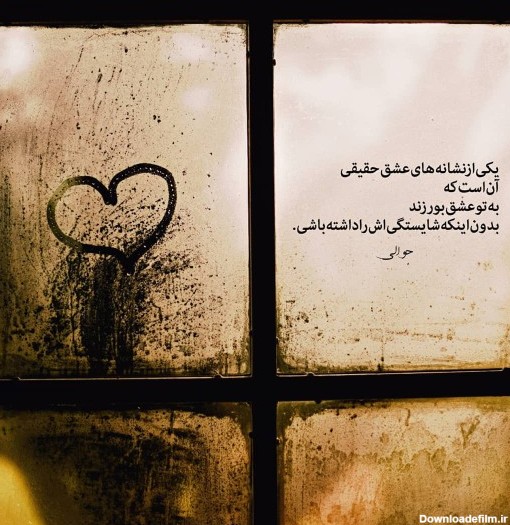 یکی از نشانه های عشق حقیقی
آن است که
به تو عشق بورزند
بدون اینکه شایستگی اش را داشته باشی.
جوالی
Downloadefilm.ir